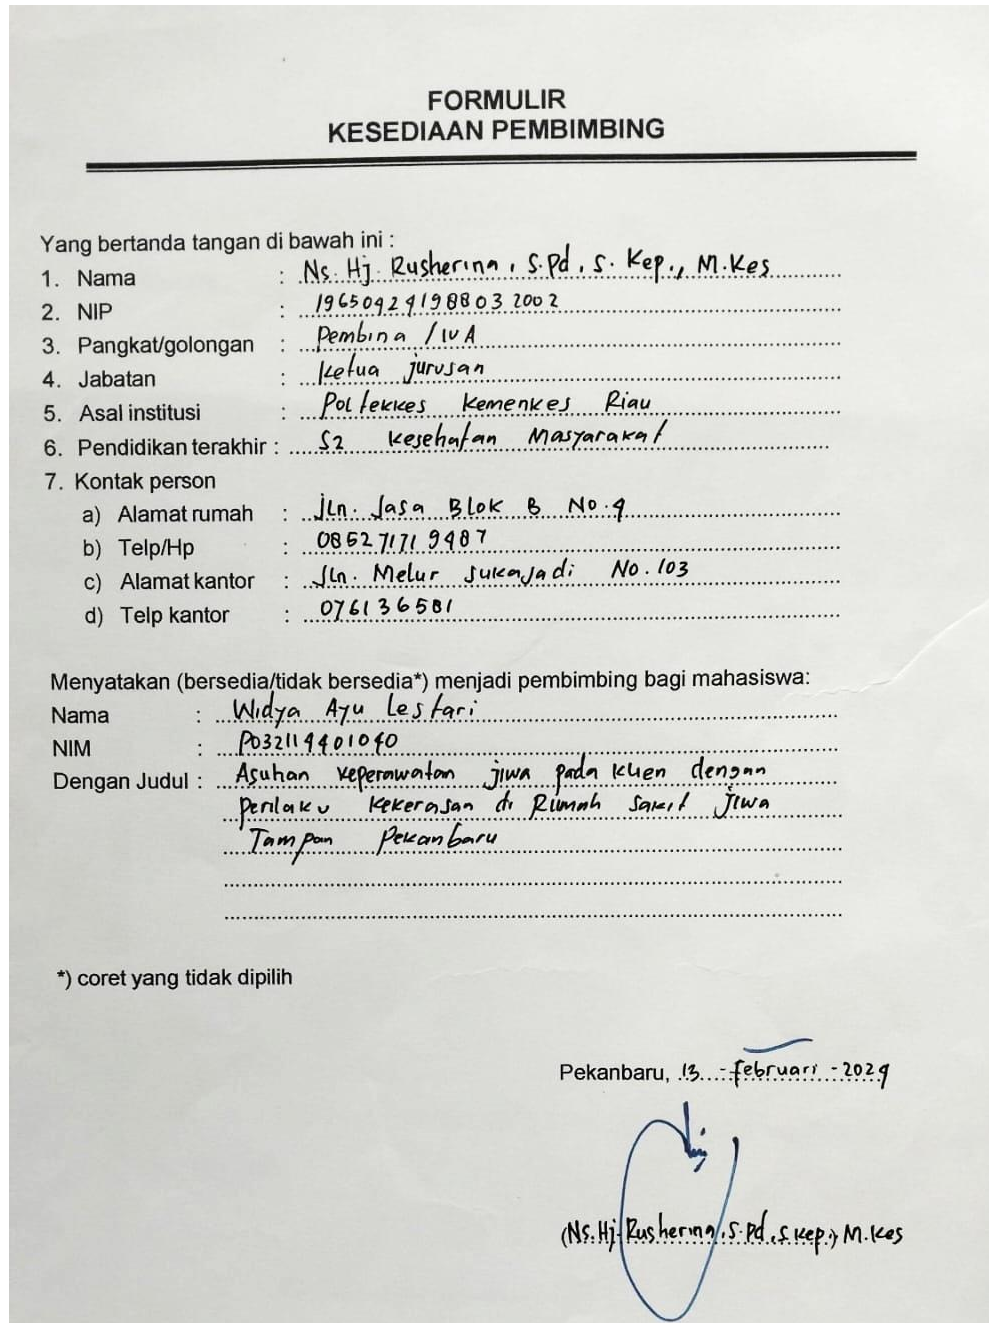 FORMULIR
KESEDIAAN PEMBIMBING
Yang bertanda tangan di bawah ini :
1. Nama : Ns. Hj. Rusherina, S.Pd, S. Kep., M.Kes
2. NIP : 196504241988032002
3. Pangkat/golongan : Pembina / IV A
4. Jabatan : Ketua jurusan
5. Asal institusi : Poltekkes Kemenkes Riau
6. Pendidikan terakhir : S2 Kesehatan Masyarakat
7. Kontak person
a) Alamat rumah : jln. Jasa Blok B No.4
b) Telp/Hp : 085271719487
c) Alamat kantor : Jln. Melur Sukajadi No. 103
d) Telp kantor : 076136581
Menyatakan (bersedia/tidak bersedia*) menjadi pembimbing bagi mahasiswa:
Nama : Widya Ayu Lestari
NIM : P032114401040
Dengan Judul : Asuhan keperawatan jiwa pada klien dengan
perilaku kekerasan di Rumah Sakit Jiwa
Tampan Pekanbaru
*) coret yang tidak dipilih
Pekanbaru, 13 - februari - 2024
(Ns. Hj. Rusherina, S.Pd, S.Kep.,) M.Kes